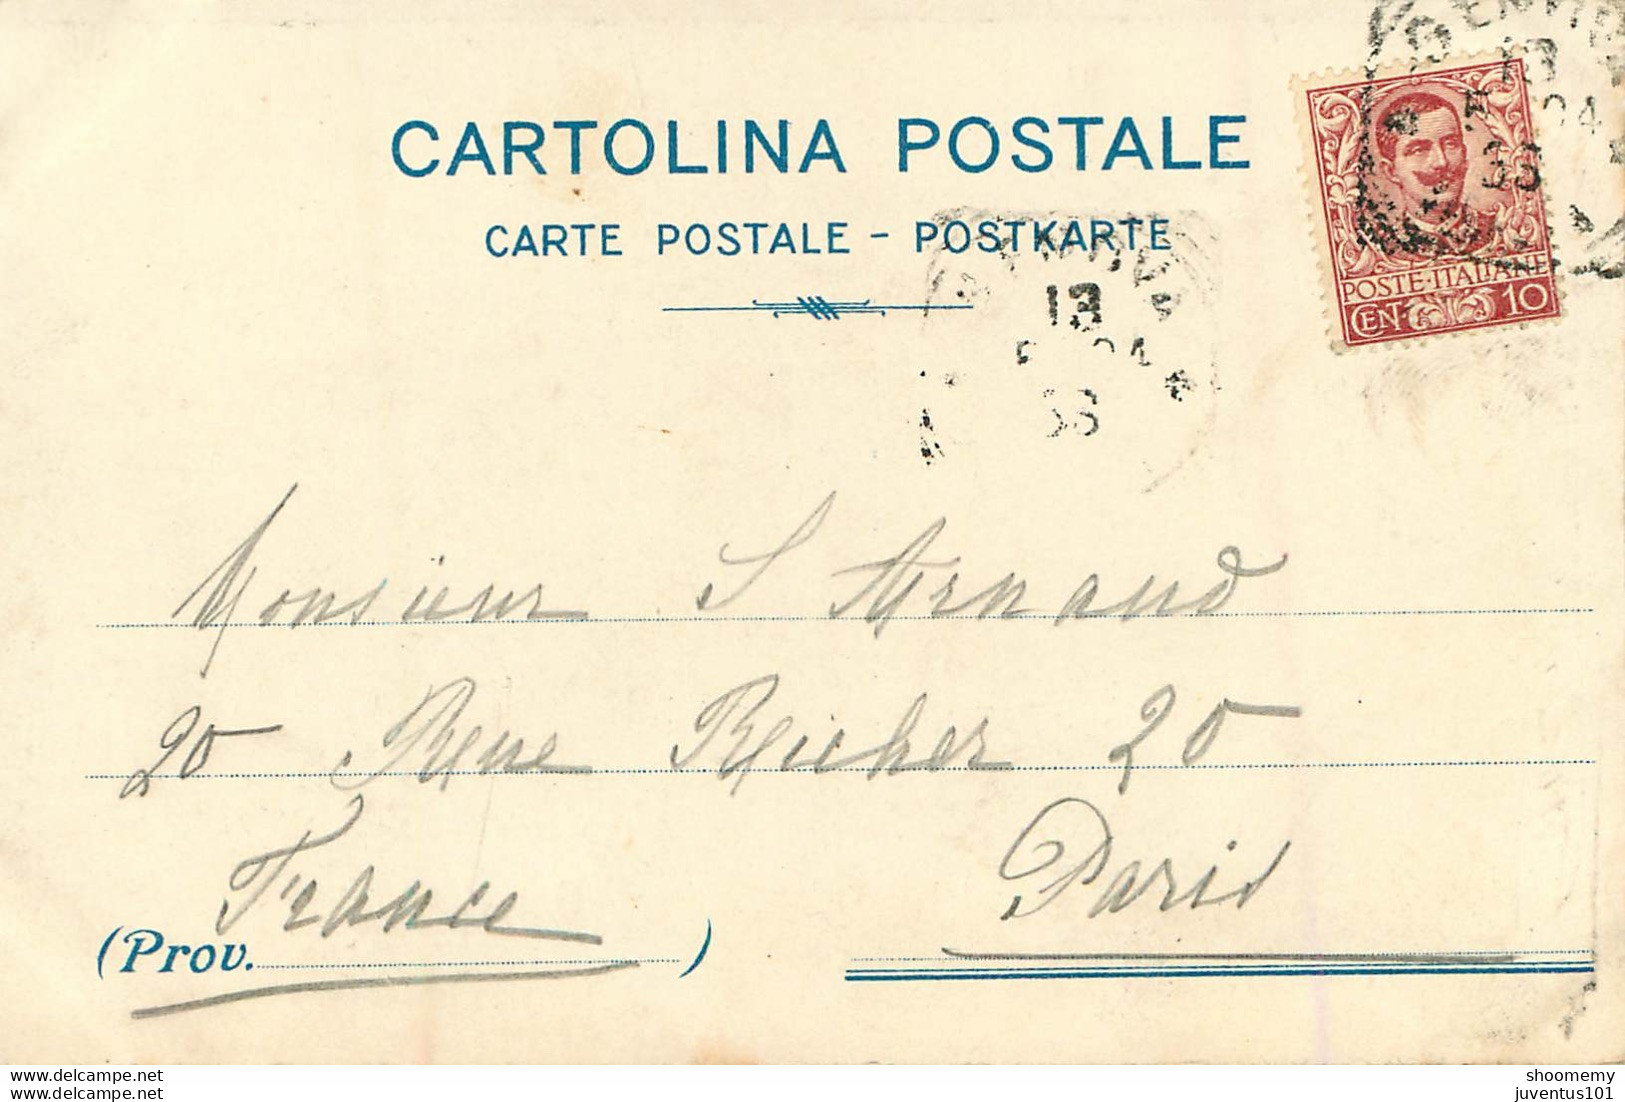 CARTOLINA POSTALE
CARTE POSTALE - POSTKARTE
13
33
13
POSTE·ITALIANE
CEN· 10
Monsieur S Arnaud
20 Rue Richer 20
France Paris
(Prov. )
www.delcampe.net
www.delcampe.net
shoomemy
juventus101